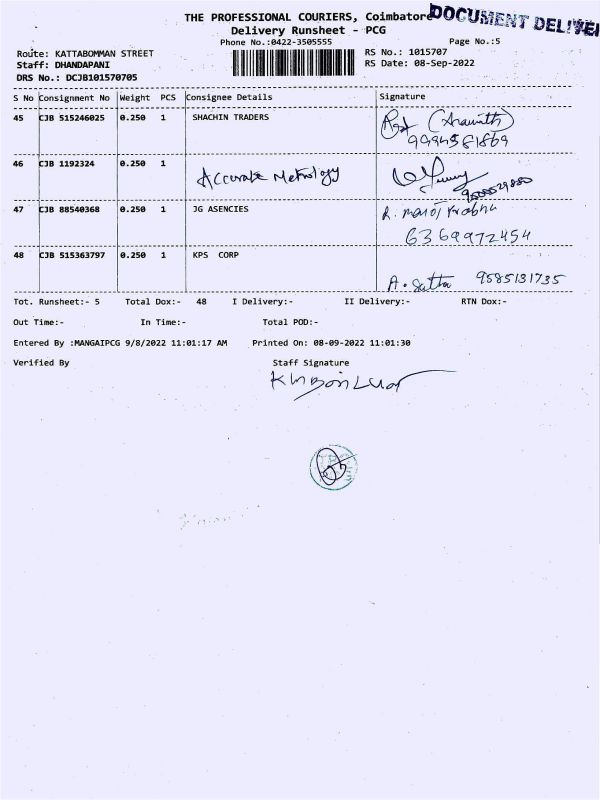 THE PROFESSIONAL COURIERS, Coimbatore
DOCUMENT DELIVE
Delivery Runsheet - PCG
Phone No.:0422-3505555
Page No.:5
Route: KATTABOMMAN STREET
RS No.: 1015707
Staff: DHANDAPANI
RS Date: 08-Sep-2022
DRS No.: DCJB101570705
S No Consignment No Weight PCS Consignee Details Signature
45 CJB 515246025 0.250 1 SHACHIN TRADERS (Aravinth)
9994581869
46 CJB 1192324 0.250 1 Accurate Metrology
47 CJB 88540368 0.250 1 JG ASENCIES R. Manoj Prabhu
6369972454
48 CJB 515363797 0.250 1 KPS CORP
9585131735
Tot. Runsheet:- 5 Total Dox:- 48 I Delivery:- II Delivery:- RTN Dox:-
Out Time:- In Time:- Total POD:-
Entered By :MANGAIPCG 9/8/2022 11:01:17 AM Printed On: 08-09-2022 11:01:30
Verified By Staff Signature